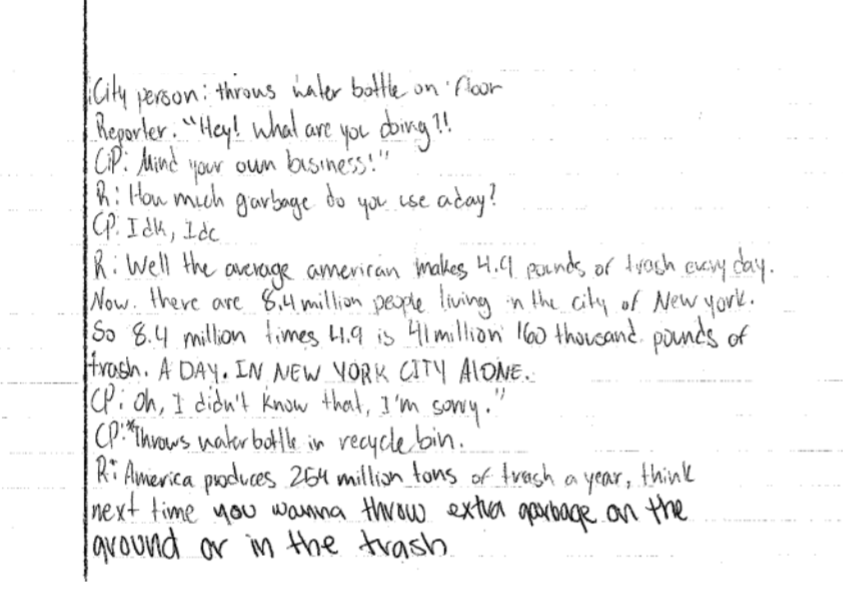 City person: throws water bottle on floor
Reporter: "Hey! What are you doing?!!
CP: Mind your own business!"
R: How much garbage do you use a day?
CP: Idk, Idc
R: Well the average american makes 4.9 pounds of trash every day.
Now. there are 8.4 million people living in the city of New york.
So 8.4 million times 4.9 is 41 million 160 thousand pounds of
trash. A DAY. IN NEW YORK CITY AlONE.
CP: Oh, I didn't know that, I'm sorry."
CP:*Throws waterbottle in recycle bin.
R: America produces 254 million tons of trash a year, think
next time you wanna throw extra garbage on the
ground or in the trash